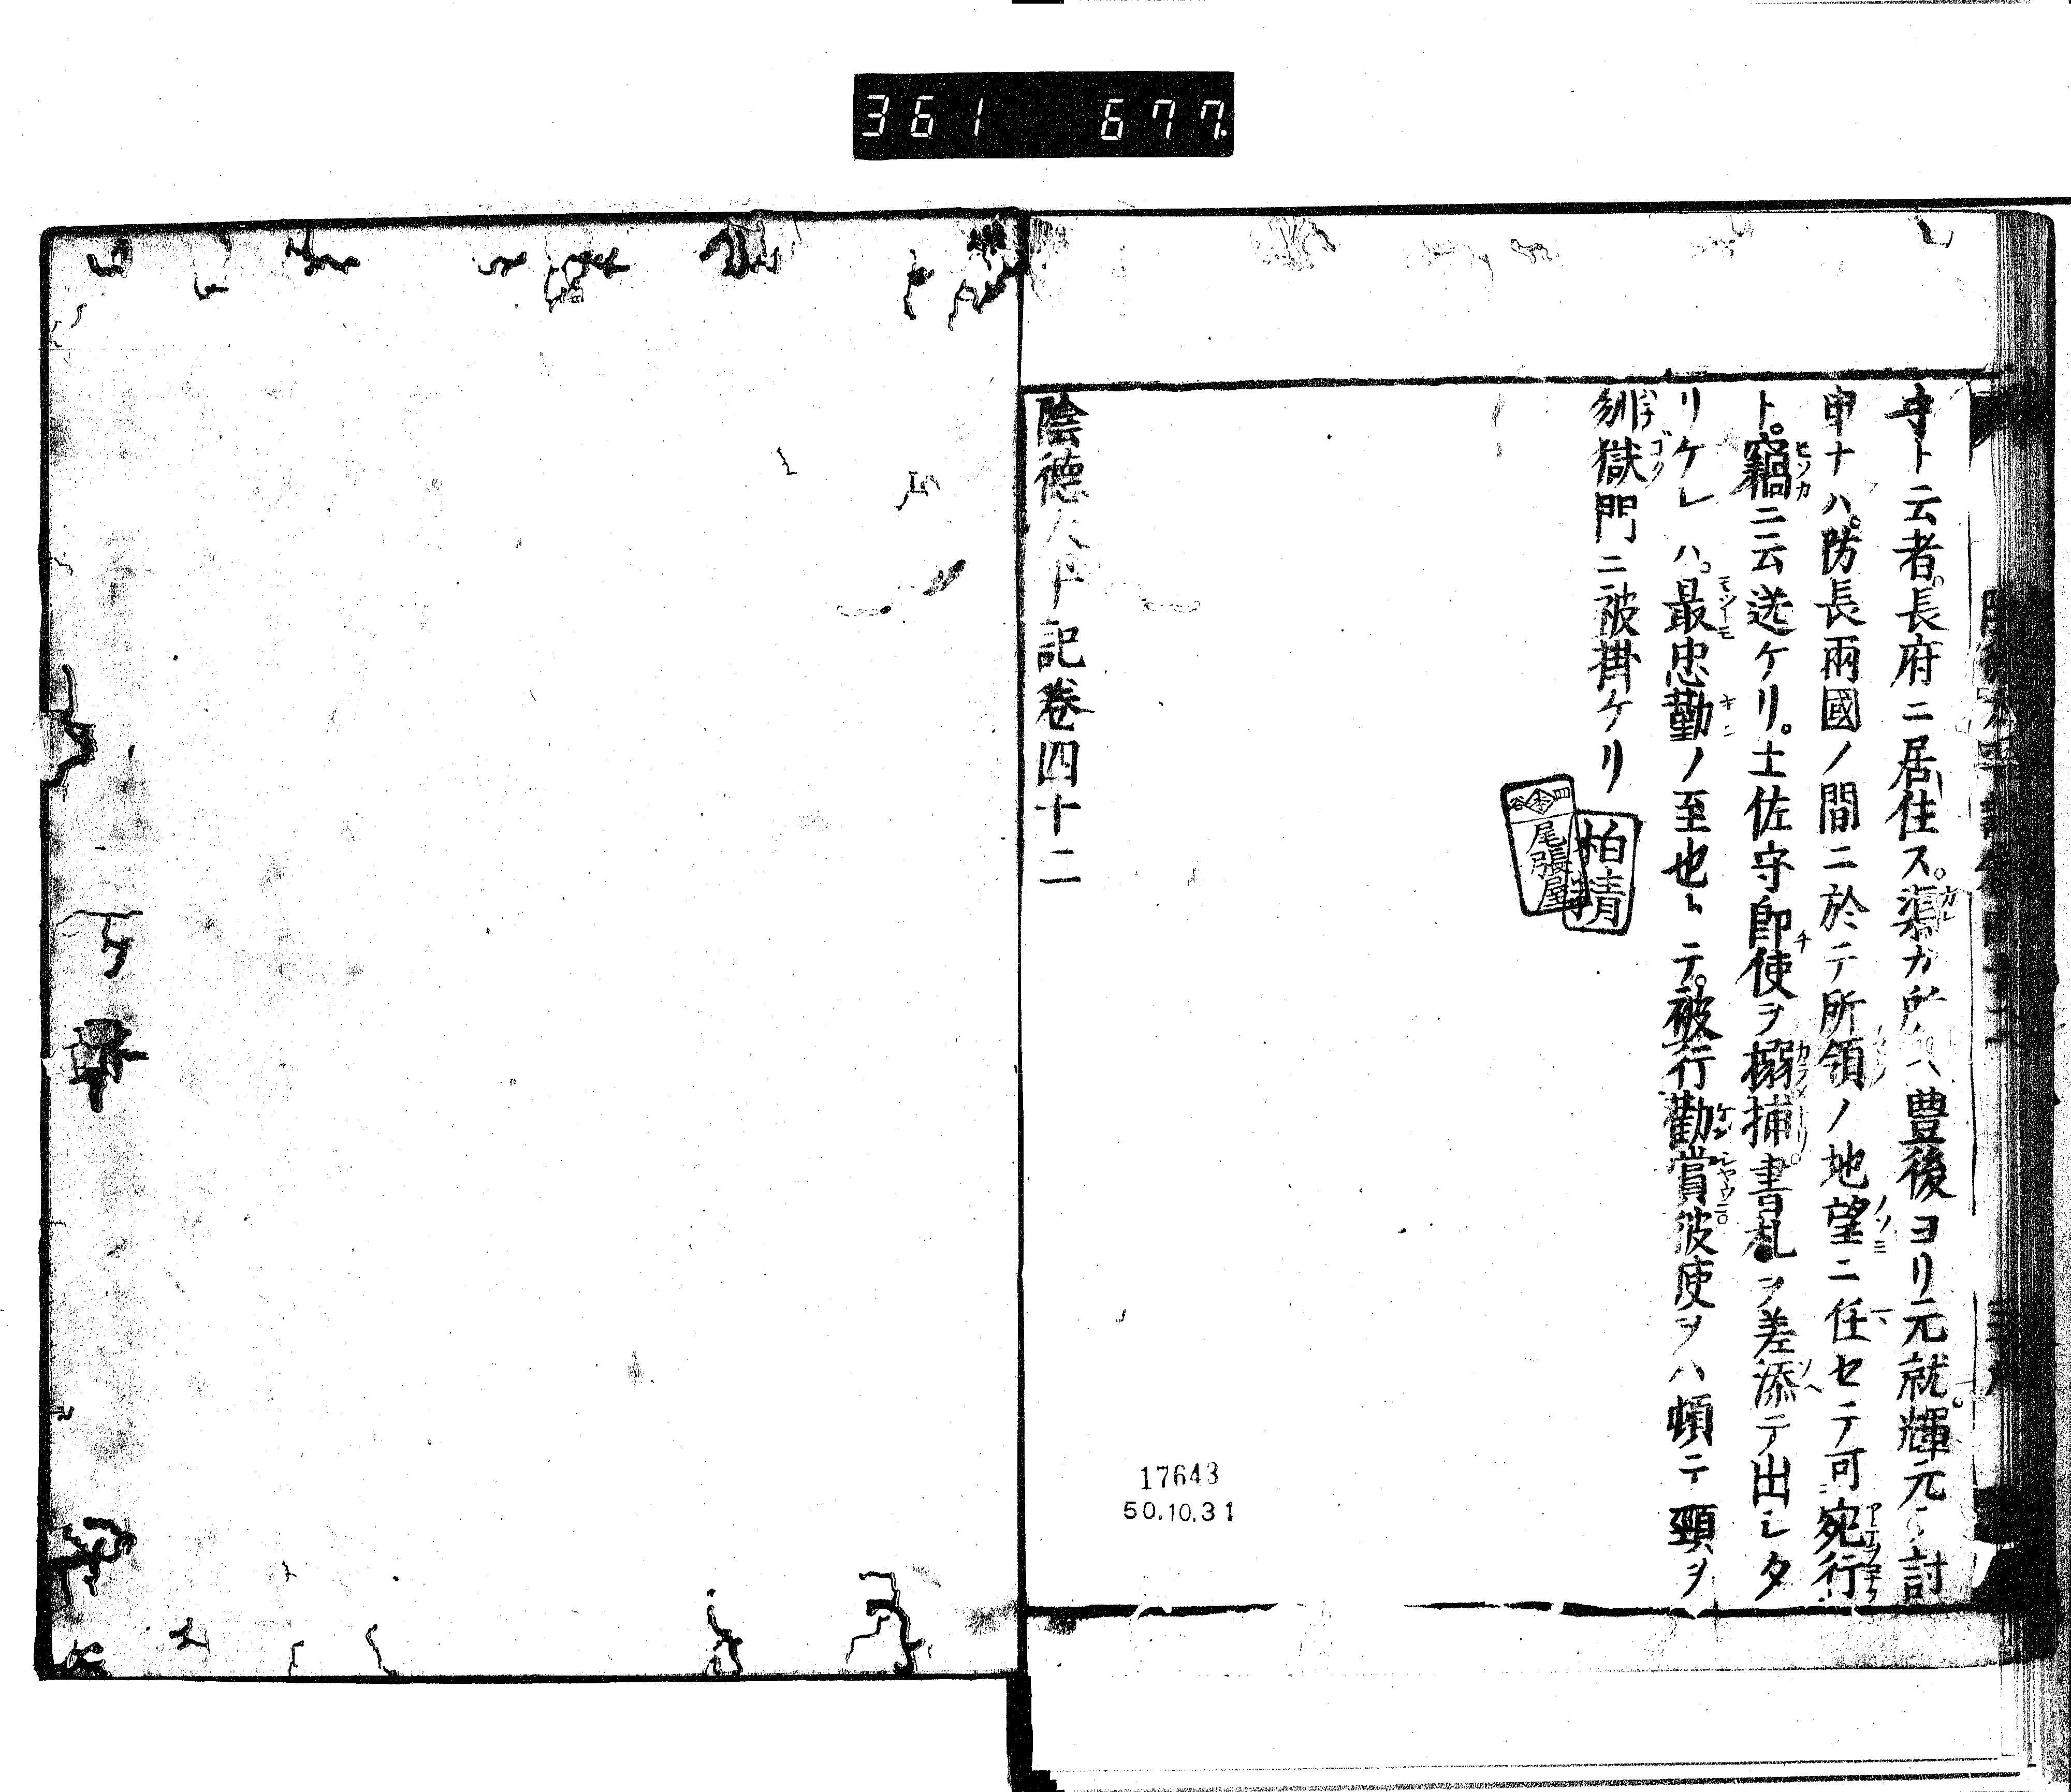 361 677
守ト云者。長府ニ居住ス。渠カ所ヘ豊後ヨリ元就。輝元ヲ討
申ナハ。防長兩國ノ間ニ於テ所領ノ地望ニ任セテ可宛行
ト。竊ニ云送ケリ。土佐守即使ヲ搦捕。書札ヲ差添テ出シタ
リケレハ。最忠勤ノ至也トテ。被行勸賞。彼使ヲハ頓テ頸ヲ
刎獄門ニ被掛ケリ
柏清
尾張屋
陰德太平記卷四十二
17643
50.10.31